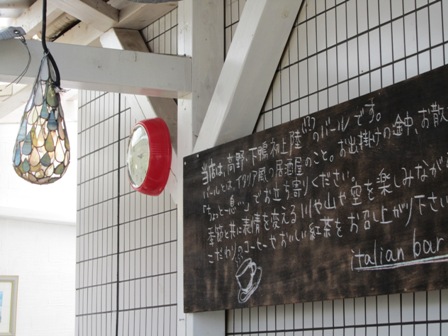 当店は、高野・下鴨初上陸のバールです。
バールとは、イタリア風の居酒屋のこと。お出掛けの途中、お散
"ちょっと一息…"でお立ち寄りください。
季節と共に表情を変える川や山や空を楽しみながら
こだわりのコーヒーやおいしい紅茶をお召し上がり下さい
italian bar